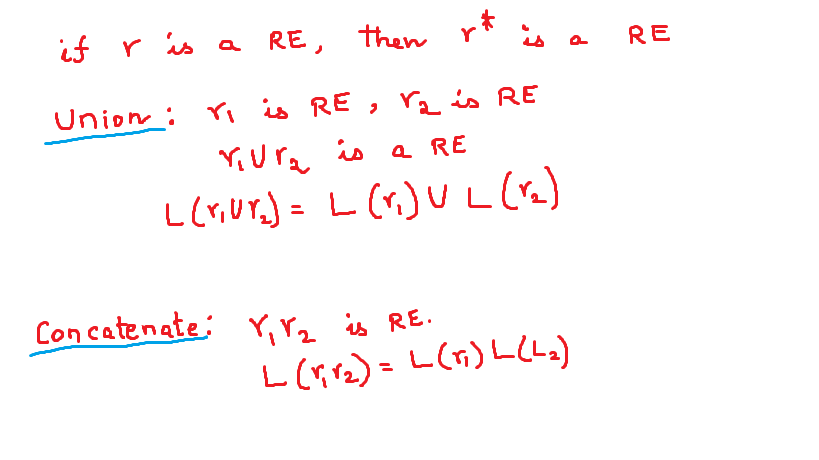 if r is a RE, then r* is a RE
Union: r₁ is RE, r₂ is RE
r₁Ur₂ is a RE
L(r₁Ur₂) = L(r₁) U L(r₂)
Concatenate: r₁r₂ is RE.
L(r₁r₂) = L(r₁) L(L₂)